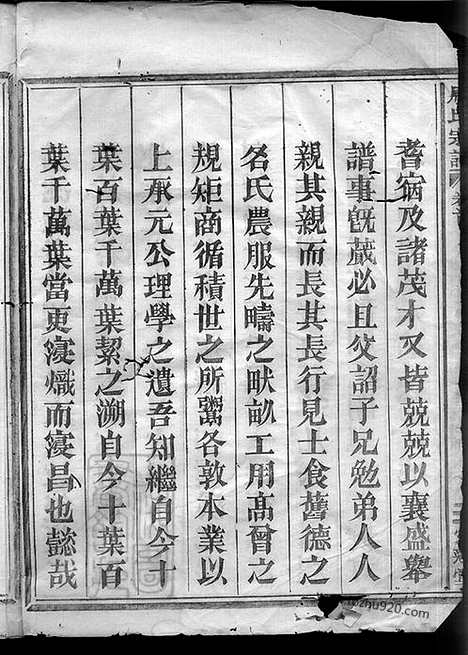 耆宿及諸茂才又皆兢兢以襄盛舉
譜事旣蕆必且父詔子兄勉弟人人
親其親而長其長行見士食舊德之
名氏農服先疇之畎畝工用高曾之
規矩商循積世之所鬻各敦本業以
上承元公理學之遺吾知繼自今十
葉百葉千萬葉絜之溯自今十葉百
葉千萬葉當更寖熾而寖昌也懿哉